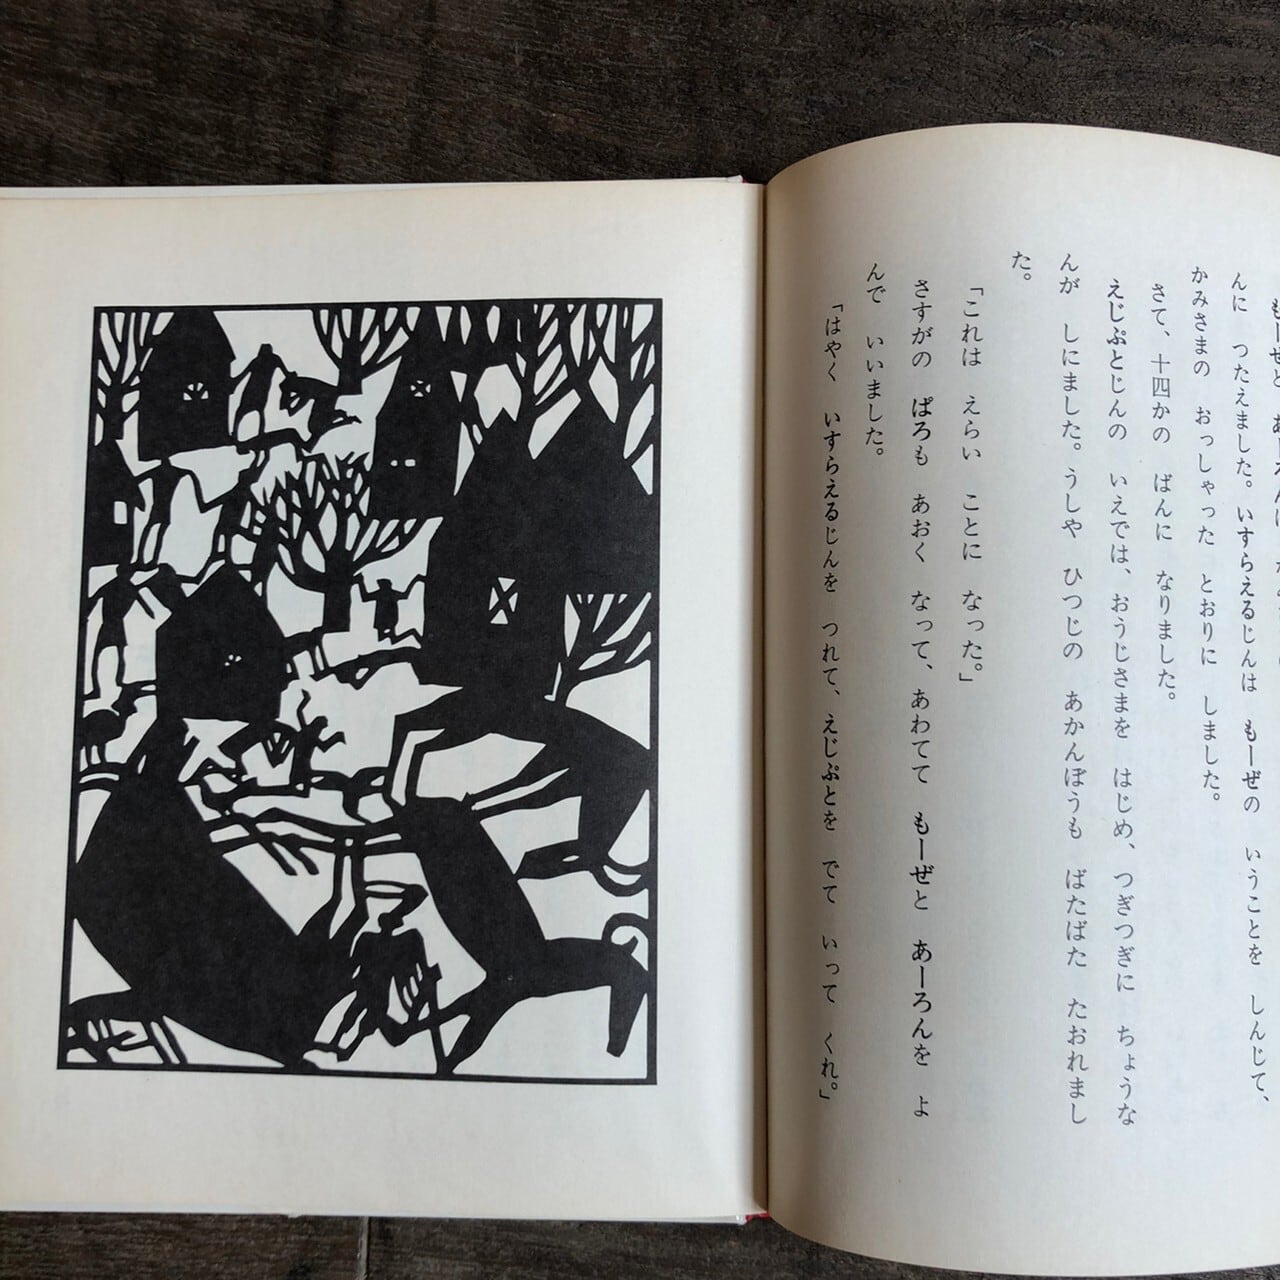 もーぜと あーろんは
んに つたえました。いすらえるじんは もーぜの いうことを しんじて、
かみさまの おっしゃった とおりに しました。
さて、十四かの ばんに なりました。
えじぷとじんの いえでは、おうじさまを はじめ、つぎつぎに ちょうな
んが しにました。うしや ひつじの あかんぼうも ばたばた たおれまし
た。
「これは えらい ことに なった。」
さすがの ぱろも あおく なって、あわてて もーぜと あーろんを よ
んで いいました。
「はやく いすらえるじんを つれて、えじぷとを でて いって くれ。」